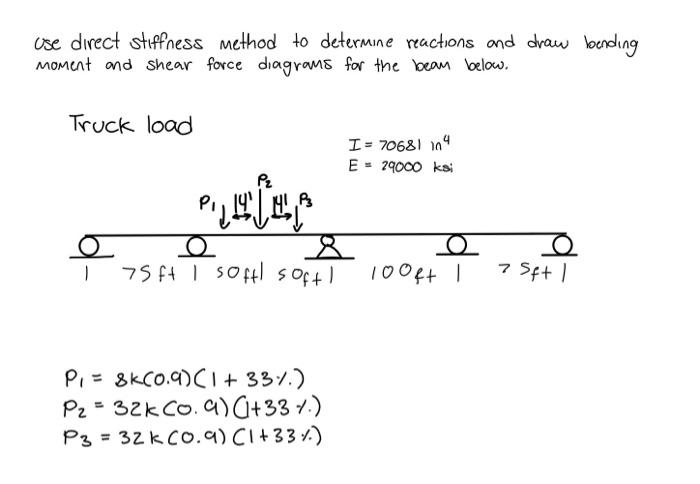 use direct stiffness method to determine reactions and draw bending
moment and shear force diagrams for the beam below.
Truck load
I = 70681 in⁴
E = 29000 ksi
P₂
P₁ 14' 14' P₃
| 75 ft | 50ft | 50ft | 100ft | 75ft |
P₁ = 8k(0.9)(1 + 33%)
P₂ = 32k(0.9)(1+33%)
P₃ = 32k(0.9)(1+33%)